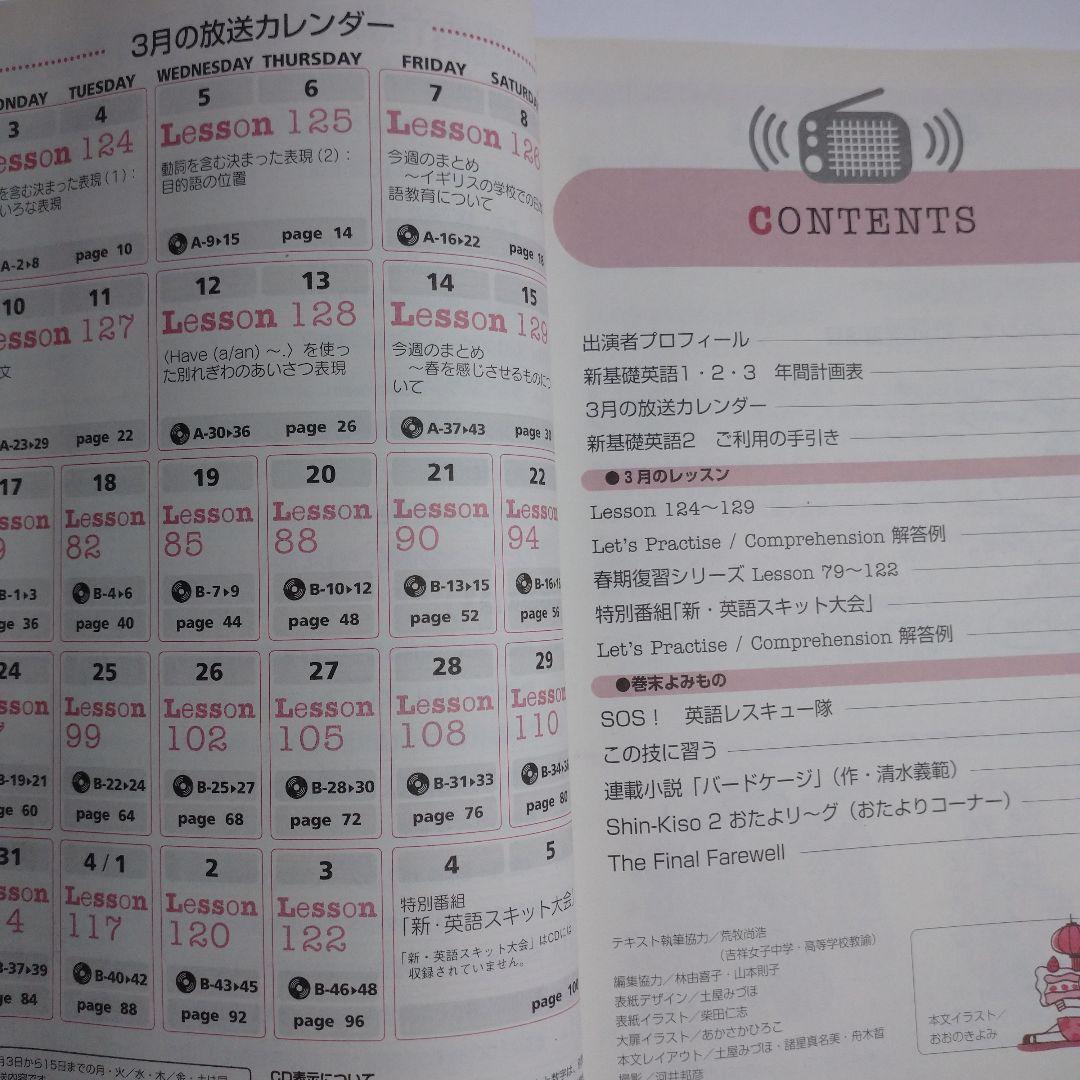 3月の放送カレンダー
TUESDAY
WEDNESDAY
THURSDAY
FRIDAY
3
4
Lesson 124
を含む決まった表現(1):
いろな表現
A-2▸8
page 10
5
6
Lesson 125
動詞を含む決まった表現(2):
目的語の位置
A-9▸15
page 14
7
8
Lesson 126
今週のまとめ
～イギリスの学校での日本
語教育について
A-16▸22
page 18
10
11
Lesson 127
文
A-23▸29
page 22
12
13
Lesson 128
〈Have (a/an) ～.〉を使っ
た別れぎわのあいさつ表現
A-30▸36
page 26
14
15
Lesson 129
今週のまとめ
～春を感じさせるものにつ
いて
A-37▸43
page 30
17
B-1▸3
36
18
Lesson
82
B-4▸6
page 40
19
Lesson
85
B-7▸9
page 44
20
Lesson
88
B-10▸12
page 48
21
Lesson
90
B-13▸15
page 52
22
Lesson
94
page 56
24
B-19▸21
60
25
Lesson
99
B-22▸24
page 64
26
Lesson
102
B-25▸27
page 68
27
Lesson
105
B-28▸30
page 72
28
Lesson
108
B-31▸33
page 76
29
Lesson
110
page 80
31
B-37▸39
84
4/1
Lesson
117
B-40▸42
page 88
2
Lesson
120
B-43▸45
page 92
3
Lesson
122
B-46▸48
page 96
4
5
特別番組
「新・英語スキット大会」
「新・英語スキット大会」はCDには
収録されていません。
page 100
月3日から15日までの月・火／水・木／金・土は同
CD表示について
CONTENTS
出演者プロフィール
新基礎英語1・2・3 年間計画表
3月の放送カレンダー
新基礎英語2 ご利用の手引き
●3月のレッスン
Lesson 124～129
Let's Practise / Comprehension 解答例
春期復習シリーズ Lesson 79～122
特別番組「新・英語スキット大会」
Let's Practise / Comprehension 解答例
●巻末よみもの
SOS！ 英語レスキュー隊
この技に習う
連載小説「バードケージ」（作・清水義範）
Shin-Kiso 2 おたよリ～グ（おたよりコーナー）
The Final Farewell
テキスト執筆協力／荒牧尚浩
（吉祥女子中学・高等学校教諭）
編集協力／林由喜子・山本則子
表紙デザイン／土屋みづほ
表紙イラスト／柴田仁志
大扉イラスト／あかさかひろこ
本文レイアウト／土屋みづほ・諸星真名美・舟木哲
撮影／河井邦彦
本文イラスト／
おおのきよみ